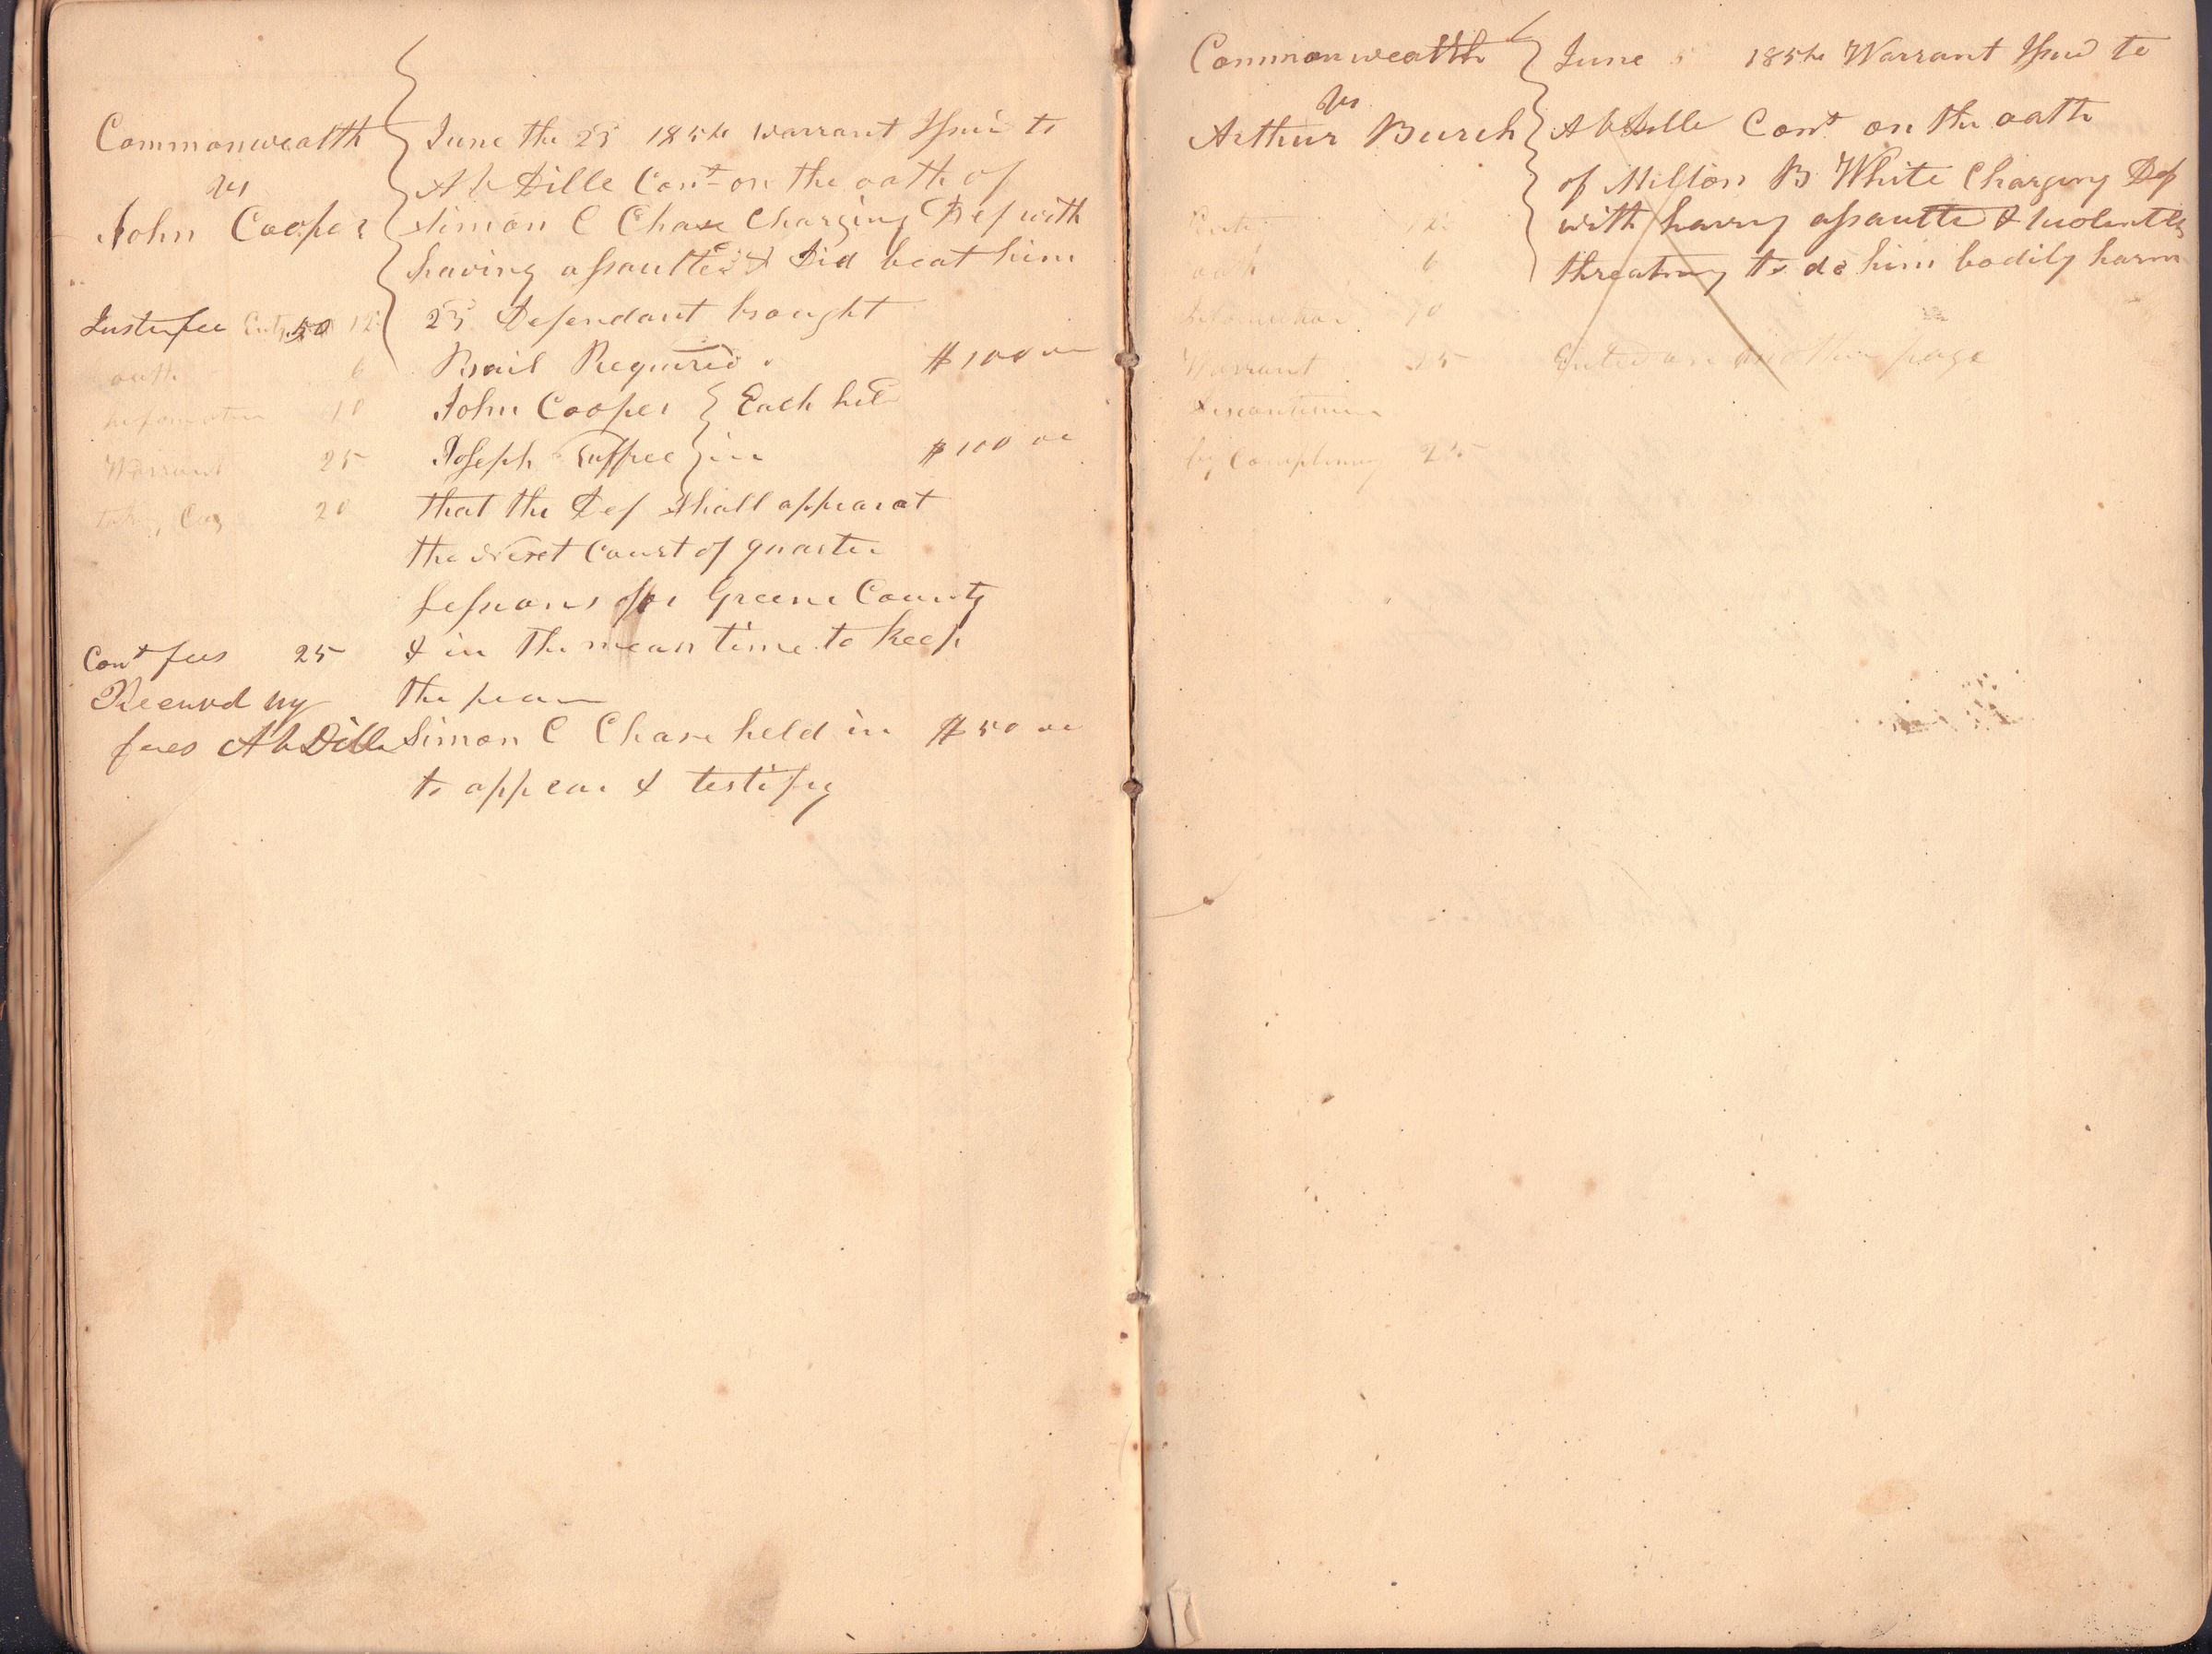 Commonwealth
vs
John Cooper
June the 25 1854 warrant Issued to
A Dille Const on the oath of
Simon C Chase Charging Def with
having assaulted & Did beat him
25 Defendant brought
Bail Required $100
John Cooper } Each held
Joseph } in $100
that the Def Shall appear at
the Next Court of quarter
Sessions for Greene County
& in the mean time to keep
the peace
Simon C Chase held in $50
to appear & testify
Justis fee 50 12
oath 6
information 10
Warrant 25
taking Cog 20
Cont fees 25
Received my
fees A Dille
Commonwealth
vs
Arthur Burch
June 1854 Warrant Issued to
A Dille Cont on the oath
of Milton B White Charging Def
with having assaulted & violently
threatning to do him bodily harm
Entered on another page
12
oath 6
information 10
Warrant 25
Discontinu
by Complain 25